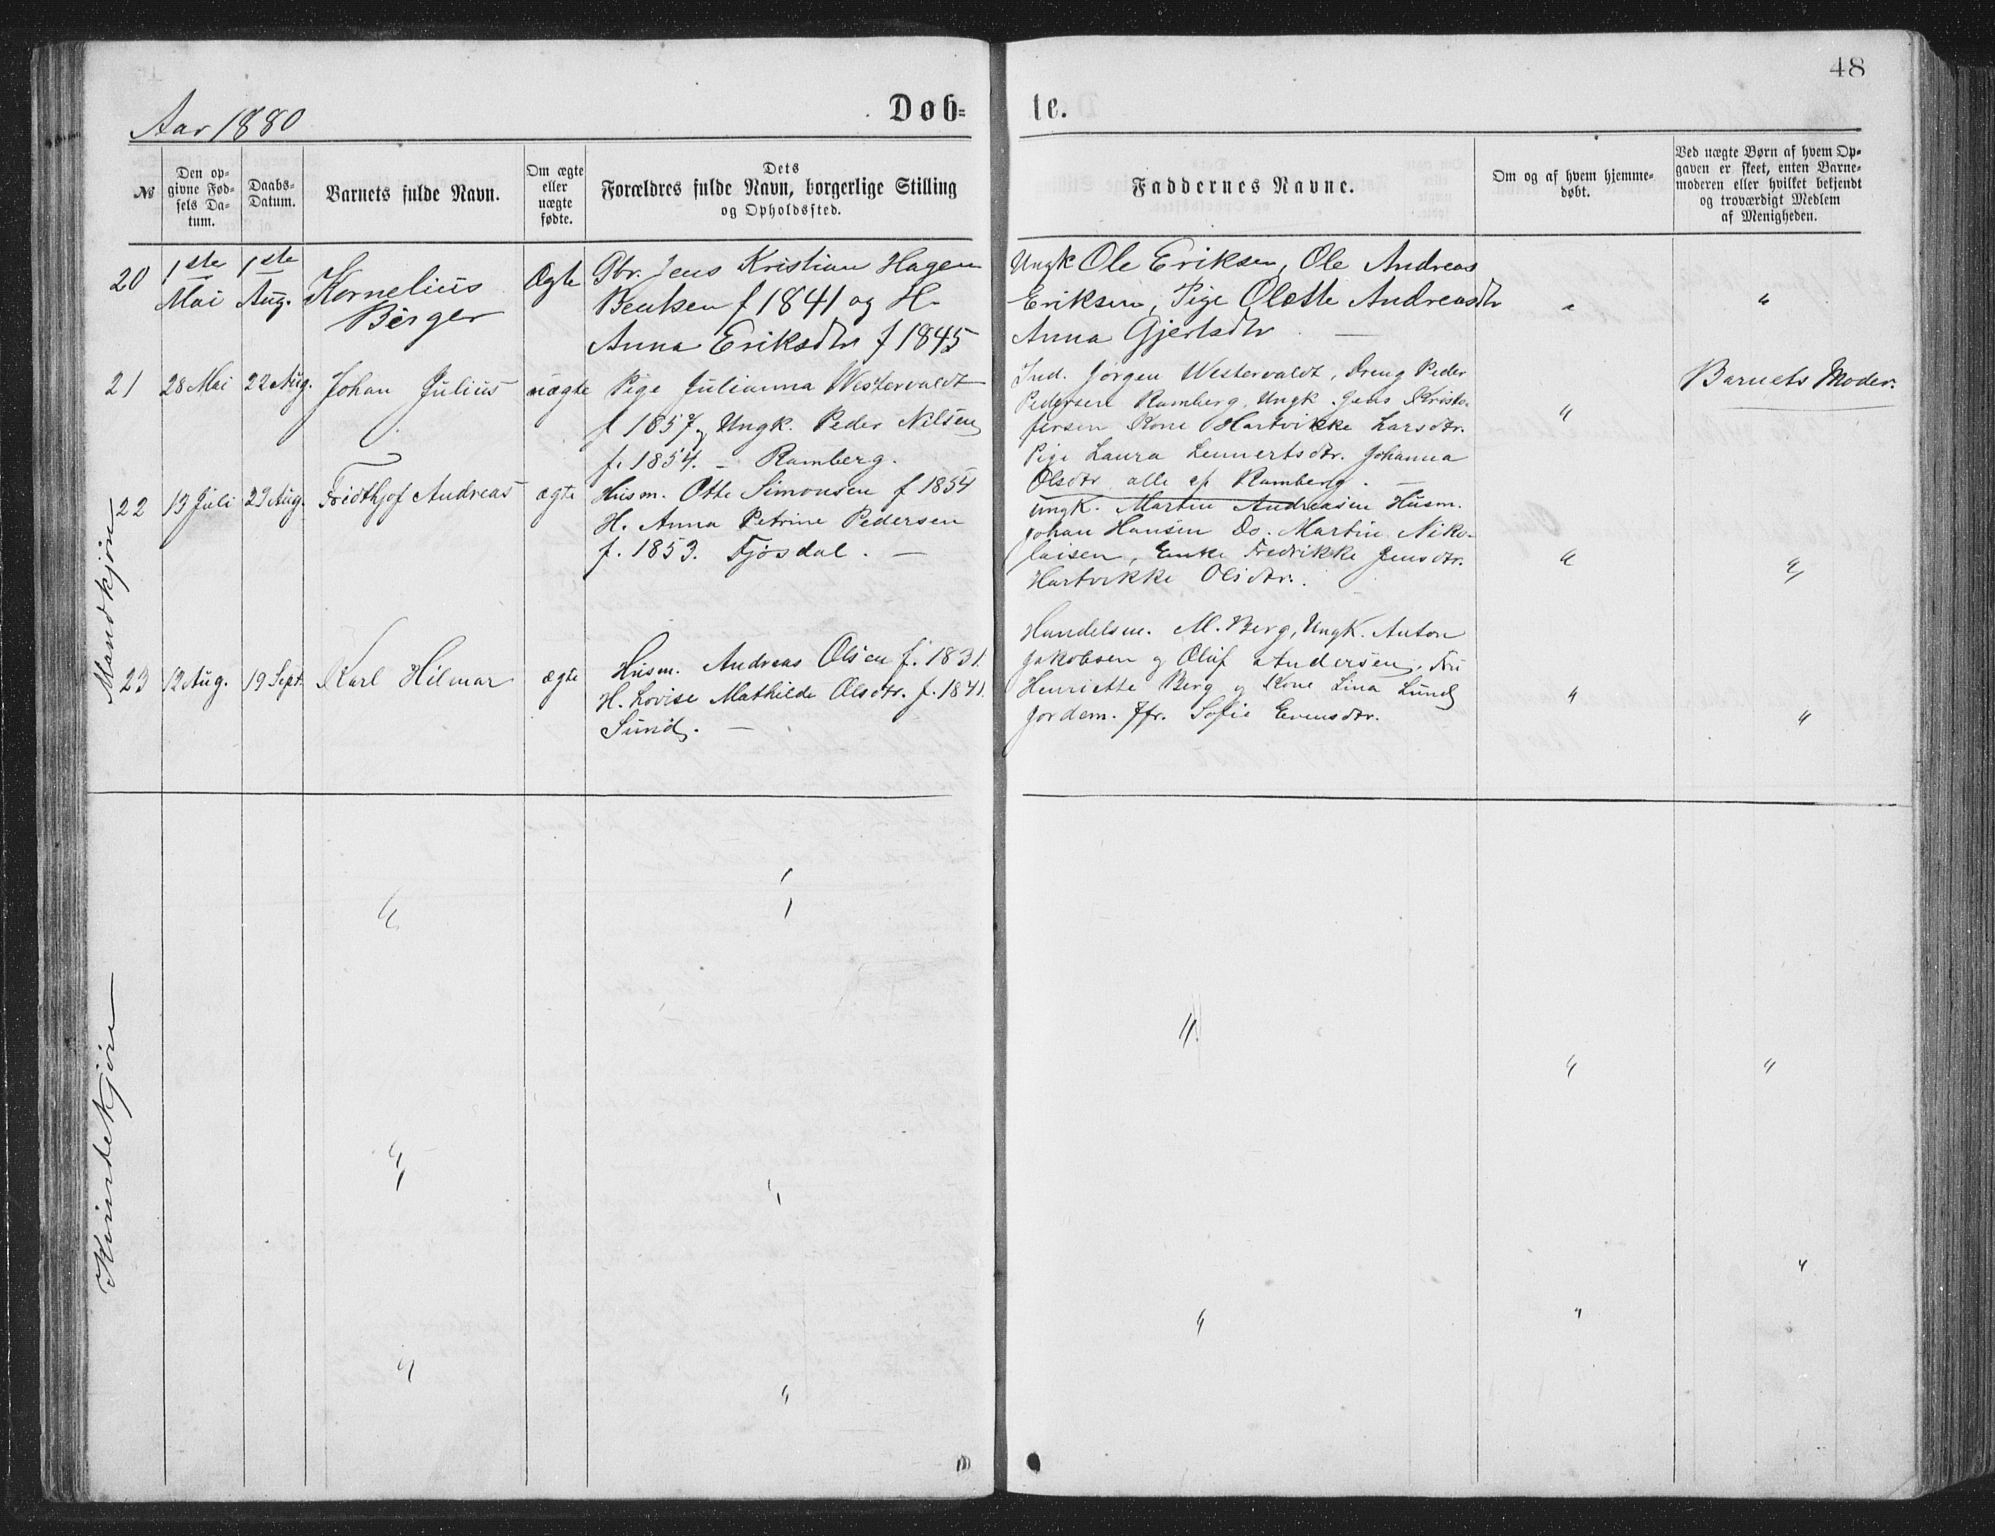 48
Aar 1880
Døb=
te.
№
Den op=
givne Fød=
sels Da=
tum.
Daabs=
Datum.
Barnets fulde Navn.
Om ægte
eller
uægte
fødte.
Dets
Forældres fulde Navn, borgerlige Stilling
og Opholdssted.
Faddernes Navne.
Om og af hvem hjemme=
døbt.
Ved uægte Børn af hvem Op=
gaven er skeet, enten Barne=
moderen eller hvilket bekjendt
og troværdigt Medlem
af Menigheden.
Mandkjøn
20
1ste
Mai
1ste
Aug.
Kornelius
Birger
Ægte
Gbr. Jens Kristian Hagen
Bentsen f 1841 og H.
Anna Eriksdtr f 1845
Ungk Ole Eriksen, Ole Andreas
Eriksen, Pige Olette Andreasdtr
Anna Gjertsdtr —
"
"
21
28 Mai
22 Aug.
Johan Julius
uægte
Pige Julianna Westervaldt
f 1857 og Ungk. Peder Nilsen
f. 1854. – Ramberg.
Ind. Jørgen Westervaldt, Dreng Peder
Pedersen Ramberg, Ungk. Jens Kristo-
fersen Kone Hartvikke Larsdtr.
Pige Laura Lennertsdtr. Johanna
Olsdtr alle af Ramberg. –
"
Barnets Moder.
22
13 Juli
29 Aug.
Fridthjof Andreas
ægte
Husm. Otte Simonsen f 1854
H. Anna Petrine Pedersen
f. 1853. Fjøsdal. —
Ungk. Martin Andreasen Husm.
Johan Hansen Do. Martin Niko-
laisen, Enke Fredrikke Jensdtr.
Hartvikke Olsdtr.
"
"
23
12 Aug.
19 Sept.
Karl Hilmar
ægte
Husm. Andreas Olsen f. 1831.
H. Lovise Mathilde Olsdtr. f. 1841.
Sund. —
Handelsm. M. Berg, Ungk. Anton
Jakobsen og Oluf Andersen, Fru
Henriette Berg og Kone Lina Lund
Jordem. Jfr. Sofie Evensdtr.
"
"
Kvindekjøn
"
"
"
"
"
"
"
"
"
"
"
"